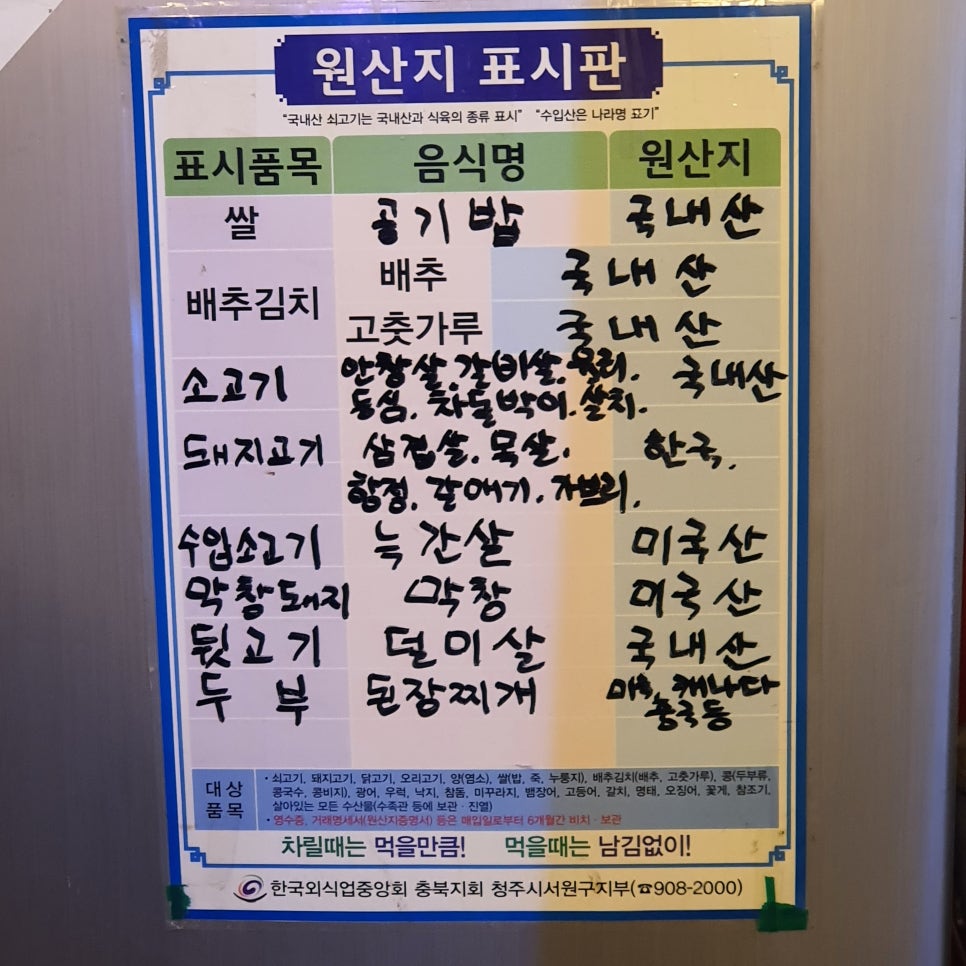 원산지 표시판
"국내산 쇠고기는 국내산과 식육의 종류 표시" "수입산은 나라명 표기"
표시품목 음식명 원산지
쌀 공기밥 국내산
배추김치 배추 국내산
고춧가루 국내산
소고기 안창살. 갈비살. 우리. 국내산
등심. 차돌박이. 살치.
돼지고기 삼겹살. 목살. 한국.
항정. 갈매기.
수입소고기 늑간살 미국산
막창돼지 막창 미국산
뒷고기 덜미살 국내산
두부 된장찌개 미국, 캐나다
중국등
대상
품목
· 쇠고기, 돼지고기, 닭고기, 오리고기, 양(염소), 쌀(밥, 죽, 누룽지), 배추김치(배추, 고춧가루), 콩(두부류,
콩국수, 콩비지), 광어, 우럭, 낙지, 참돔, 미꾸라지, 뱀장어, 고등어, 갈치, 명태, 오징어, 꽃게, 참조기,
살아있는 모든 수산물(수족관 등에 보관 · 진열)
· 영수증, 거래명세서(원산지증명서) 등은 매입일로부터 6개월간 비치 · 보관
차릴때는 먹을만큼! 먹을때는 남김없이!
한국외식업중앙회 충북지회 청주시서원구지부(☎908-2000)